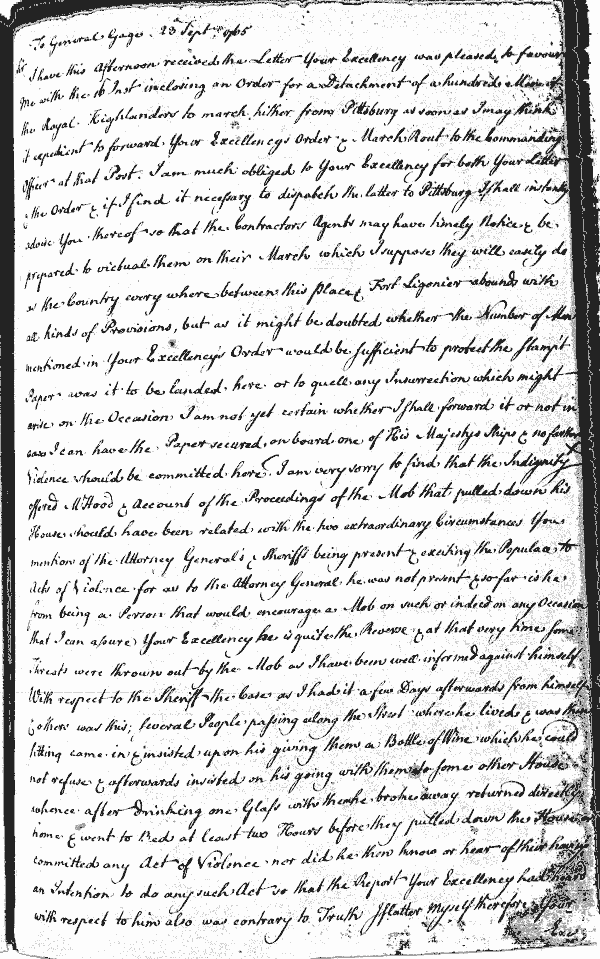 To General Gage. 23d Sept. 1765
Sir I have this Afternoon received the Letter Your Excellency was pleased to favour
me with the 16 Inst inclosing an Order for a Detachment of a hundred Men of
the Royal Highlanders to march hither from Pittsburg as soon as I may think
it expedient to forward Your Excellencys Order & March Rout to the Commanding
Officer at that Post. I am much obliged to Your Excellency for both Your Letter
& the Order & if I find it necessary to dispatch the latter to Pittsburg I shall instantly
advise You thereof so that the Contractors Agents may have timely Notice & be
prepared to victual them on their March which I suppose they will easily do
as the Country every where between this place & Fort Ligonier abounds with
all kinds of Provisions, but as it might be doubted whether the Number of Men
mentioned in Your Excellency's Order would be sufficient to protect the Stampt
Paper was it to be landed here or to quell any Insurrection which might
arise on the Occasion I am not yet certain whether I shall forward it or not in
case I can have the Paper secured on board one of His Majestys Ships & no farther
Violence should be committed here. I am very sorry to find that the Indignity
offered Mr Hood & Account of the Proceedings of the Mob that pulled down his
House should have been related with the two extraordinary Circumstances You
mention of the Attorney General's & Sheriffs being present & exciting the Populace to
Acts of Violence for as to the Attorney General he was not present & so far is he
from being a Person that would encourage a Mob on such or indeed on any Occasion
that I can assure Your Excellency he is quite the Reverse & at that very time some
Threats were thrown out by the Mob as I have been well informed against himself
With respect to the Sheriff the Case as I had it a few Days afterwards from himself
& others was this; several People passing along the Street where he lived & was then
sitting came in & insisted upon his giving them a Bottle of Wine which he could
not refuse & afterwards insisted on his going with them to some other House
whence after drinking one Glass with them he broke away returned directly
home & went to Bed at least two Hours before they pulled down the House or
committed any Act of Violence nor did he then know or hear of their having
an Intention to do any such Act so that the Report Your Excellency had heard
with respect to him also was contrary to Truth I flatter Myself therefore Your
Excy